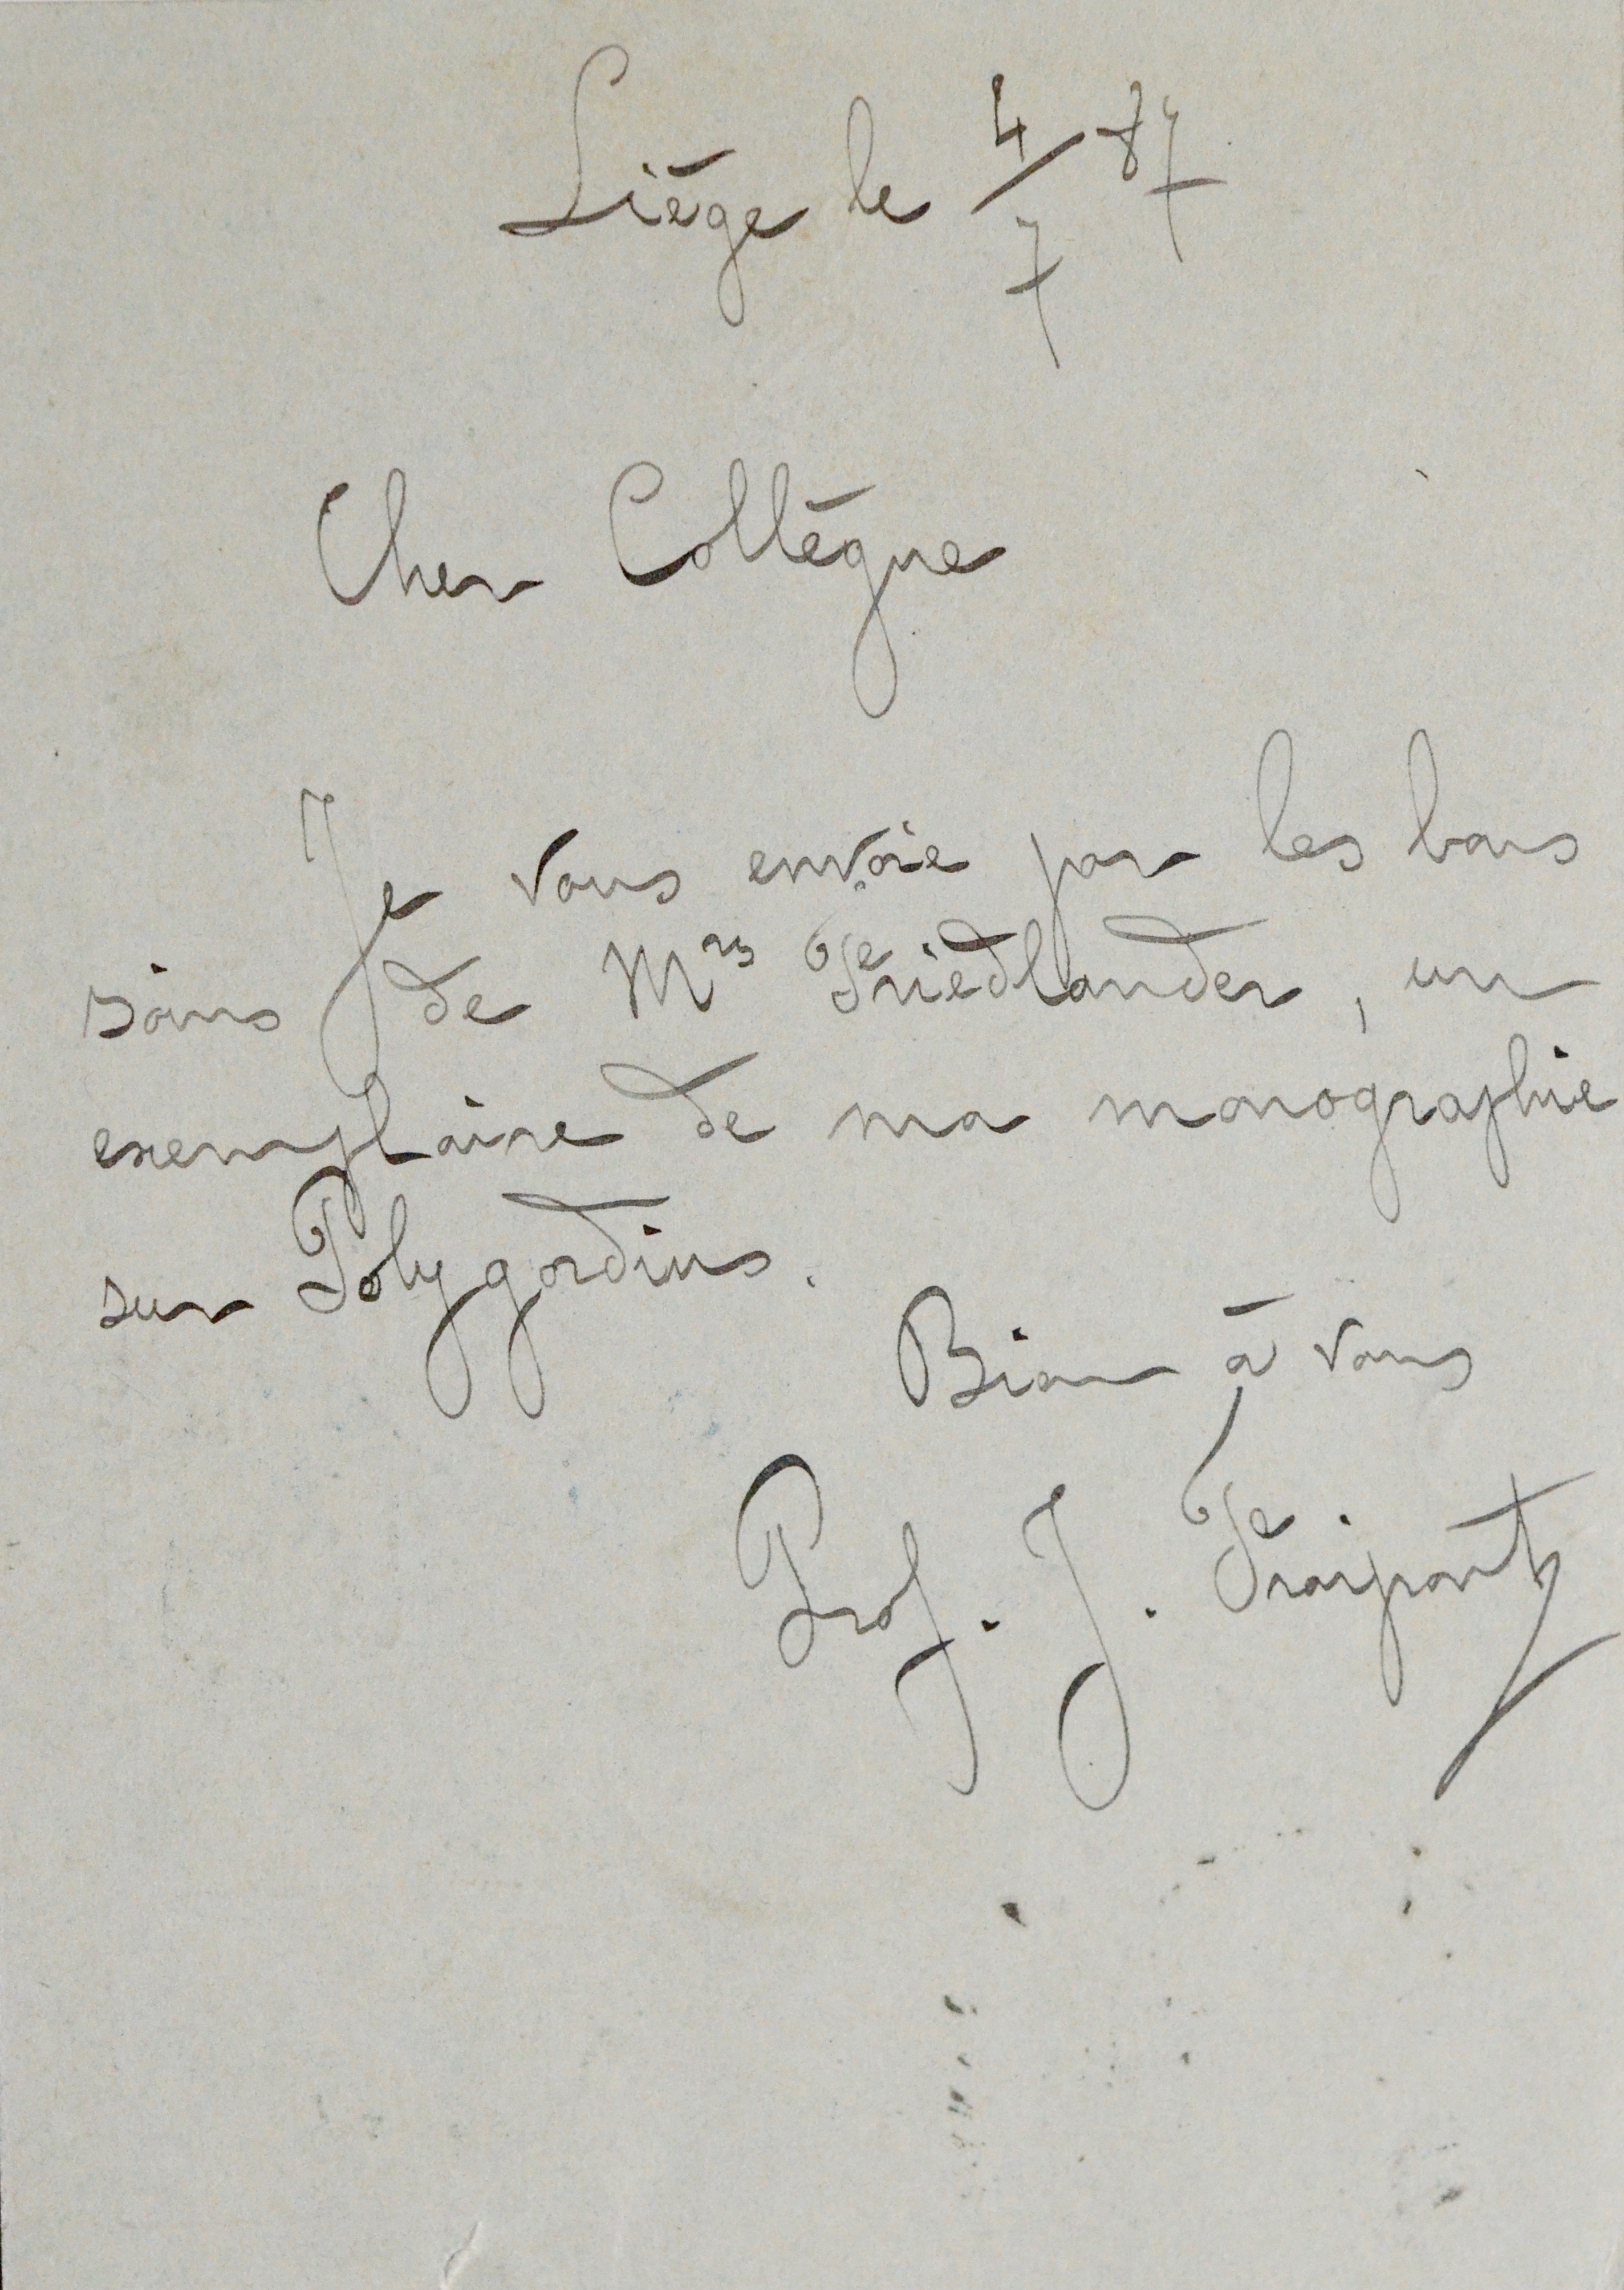 Liége le 4/7 87
Cher Collégue
Je vous envoie par les bons
soins de Mrs Friedlander, un
exemplaire de ma monographie
sur Polygordius.
Bien à vous
Prof. J. Fraipont